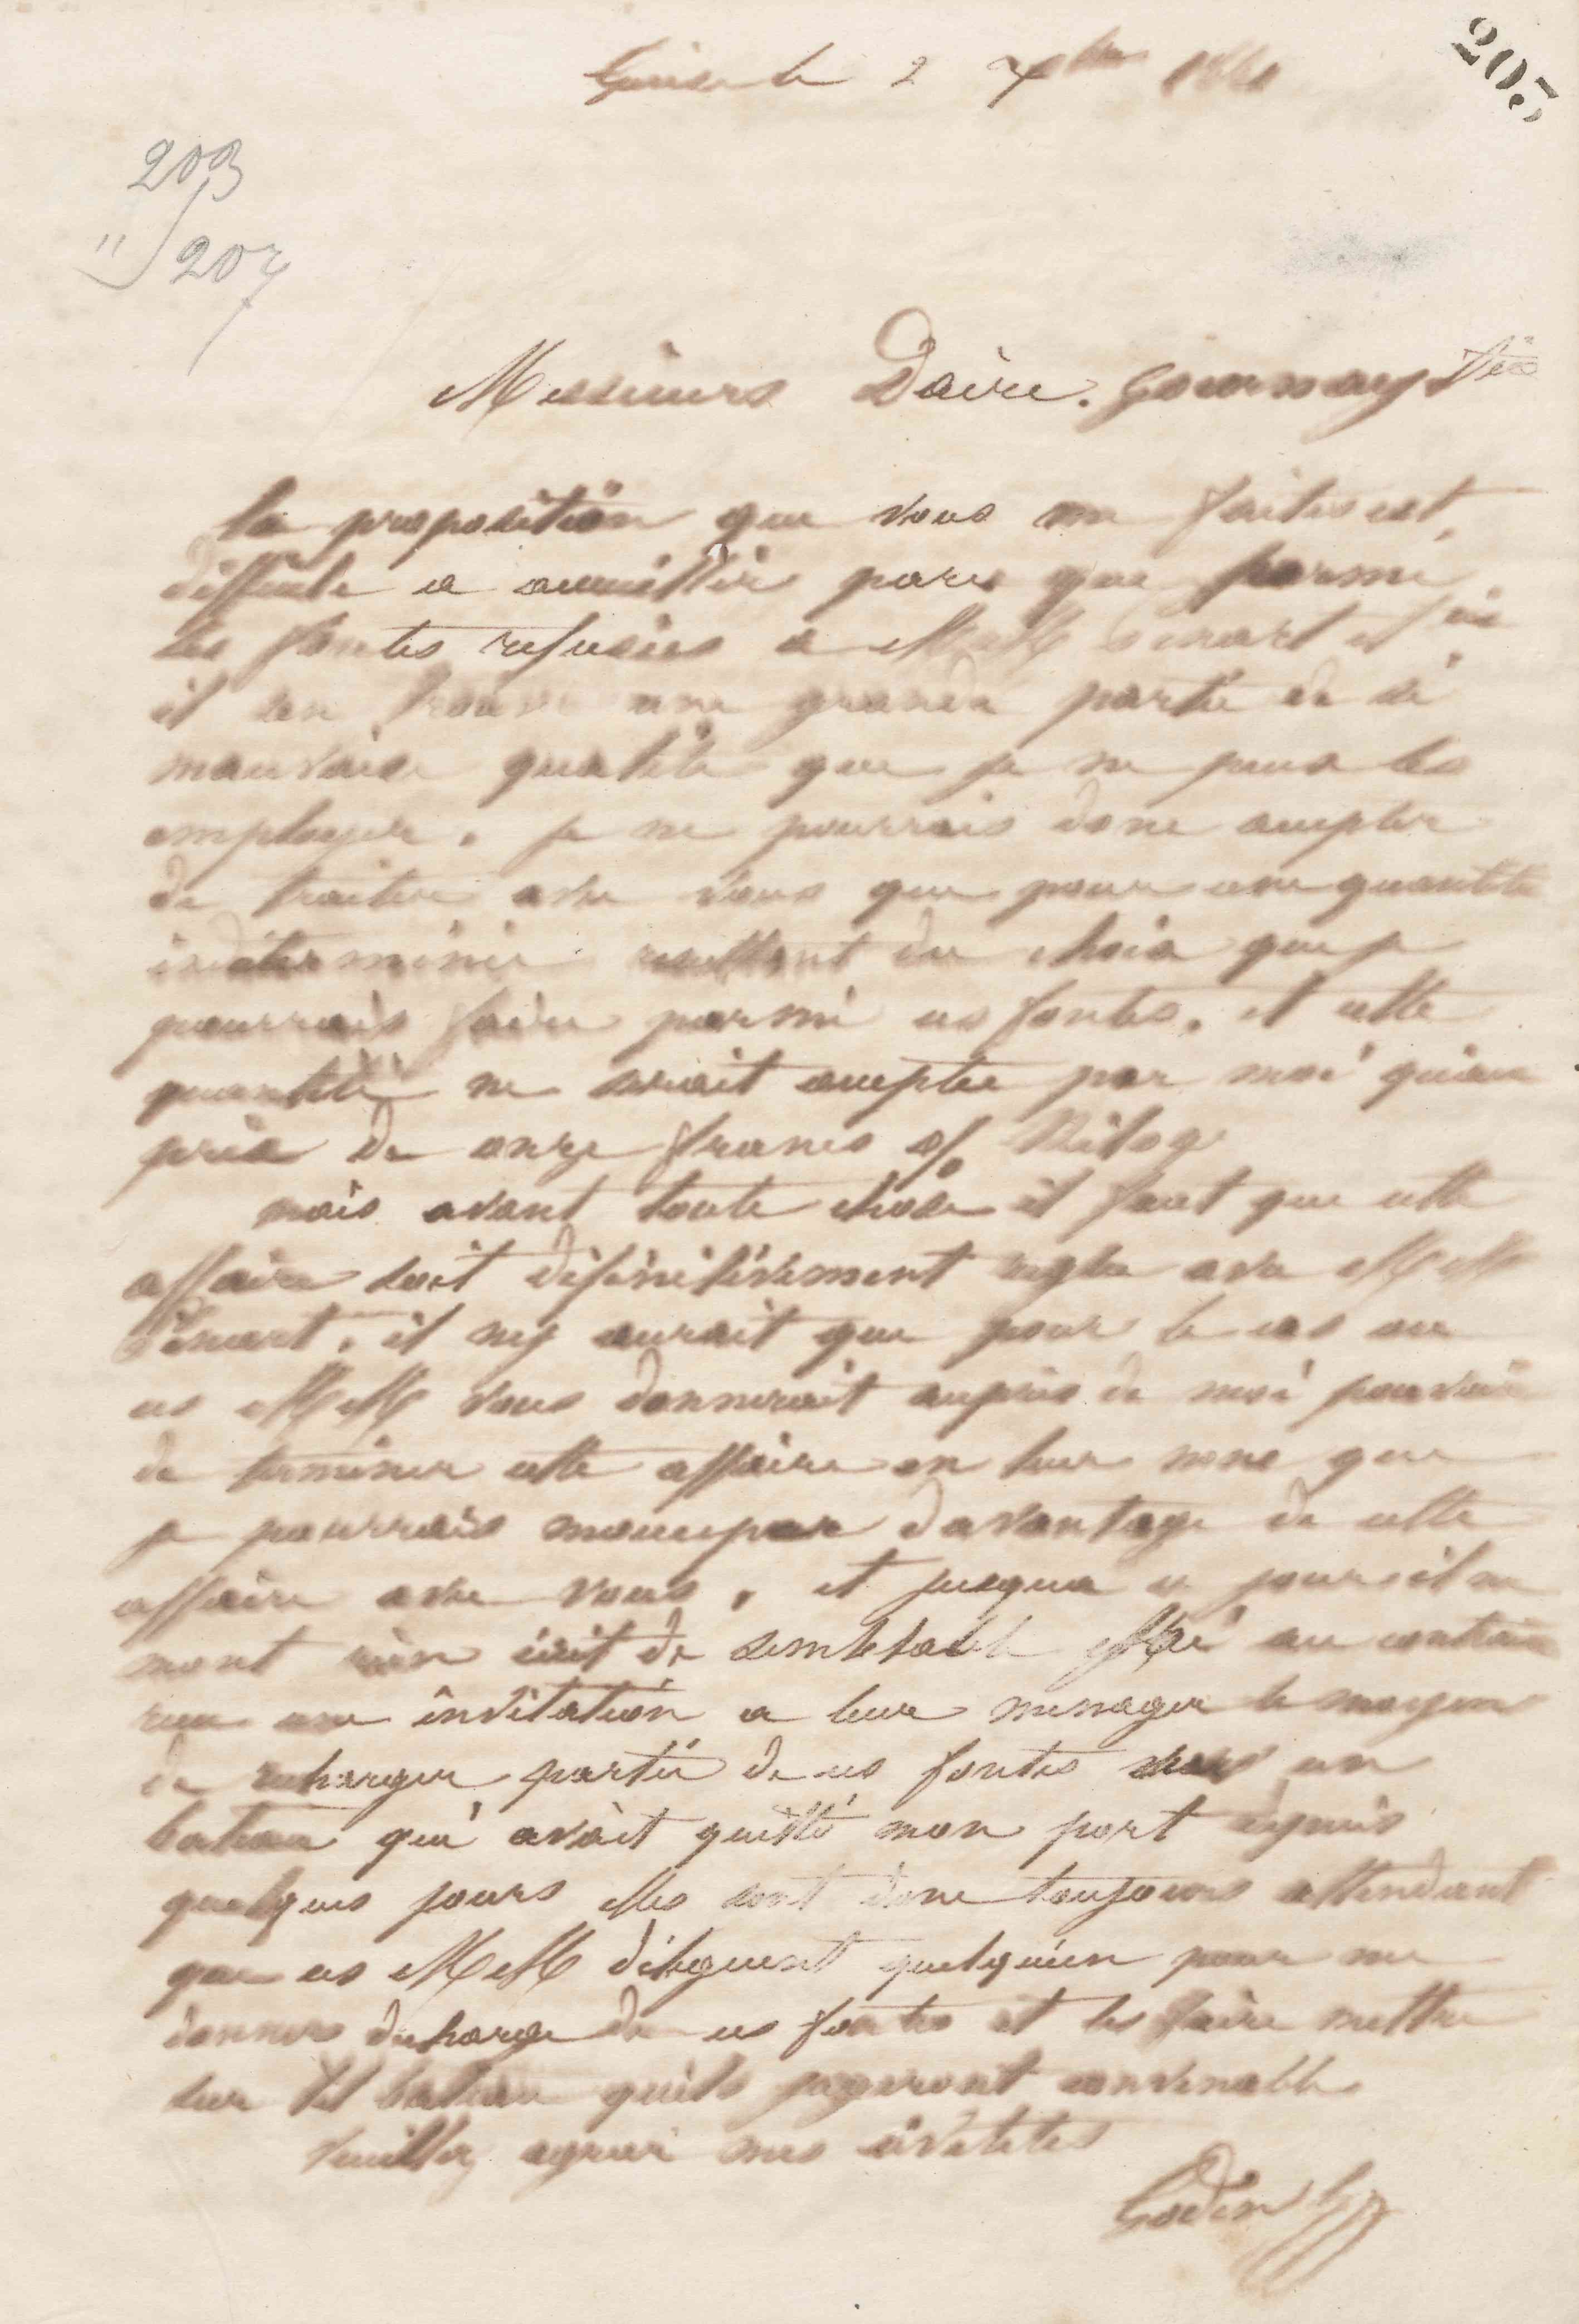 Guise le 2 7bre
205
203
" 207
Messieurs Daire. Gournay & Cie
la proposition que vous me faites est
difficile a accueillir parce que parmi
les fontes refusées a MM et Cie
il s'en trouve une grande partie de si
mauvaise qualité que je ne peux les
employer. je ne pourrais donc accepter
de traiter avec vous que pour une quantité
indéterminée resultant du choix que je
pourrais faire parmi ces fontes. et cette
quantité ne serait acceptée par moi qu'au
prix de onze francs % Kilog
mais avant toute chose il faut que cette
affaire soit définitivement reglee avec MM
il ny aurait que pour le cas ou
ces MM vous donnerait aupres de moi pouvoir
de terminer cette affaire en leur nom que
je pourrais moccuper davantage de cette
affaire avec vous, et jusqua ce jour il ne
mont rien écrit de semblable au contraire
recu une invitation a leur menager le moyen
de recharger partie de ces fontes un
bateau qui avait quitté mon port depuis
quelques jours elles sont donc toujours attendant
que ces MM déleguent quelqu'un pour me
donner decharge de ces fontes et les faire mettre
sur tel bateau quils jugeront convenable
Veuillez agreer mes civilités
Godin